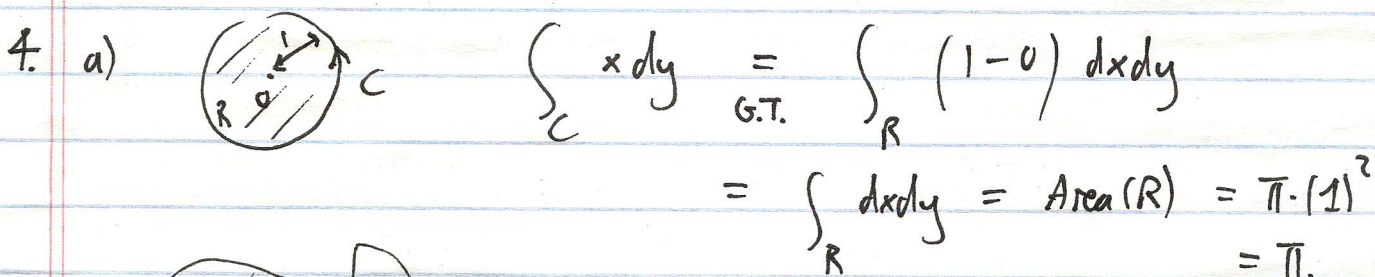 4. a) 1 0 R C ∫_C x dy =_{G.T.} ∫_R (1-0) dxdy
= ∫_R dxdy = Area(R) = π·(1)²
= π.